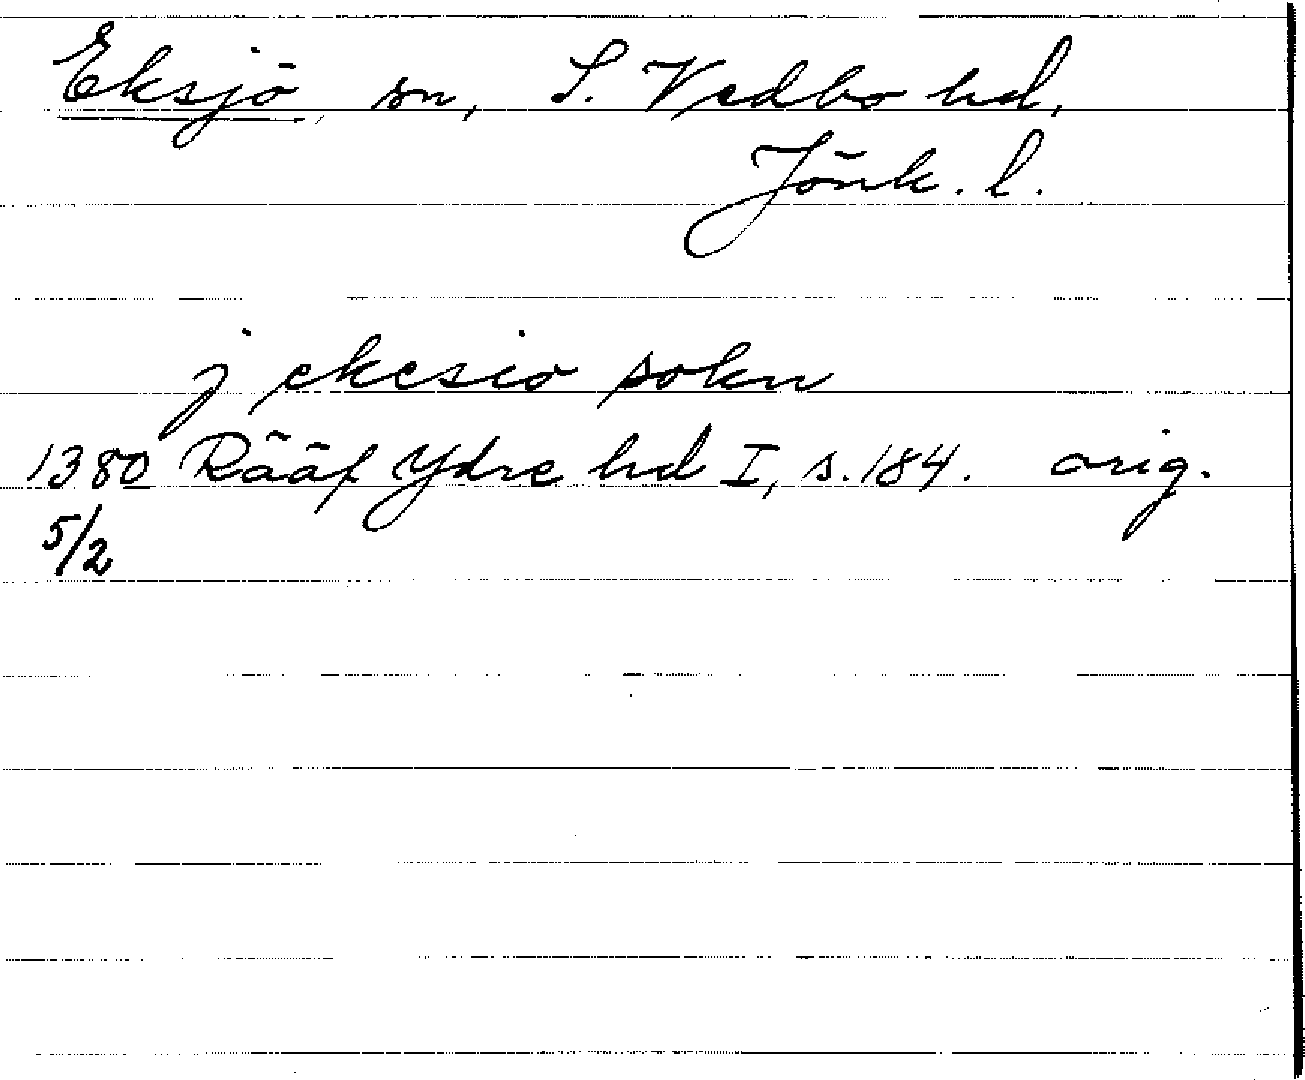 Eksjö sn, S. Vedbo hd,
Jönk. l.
j ekesio sokn
1380 Rääf Ydre hd I, s. 184. orig.
5/2